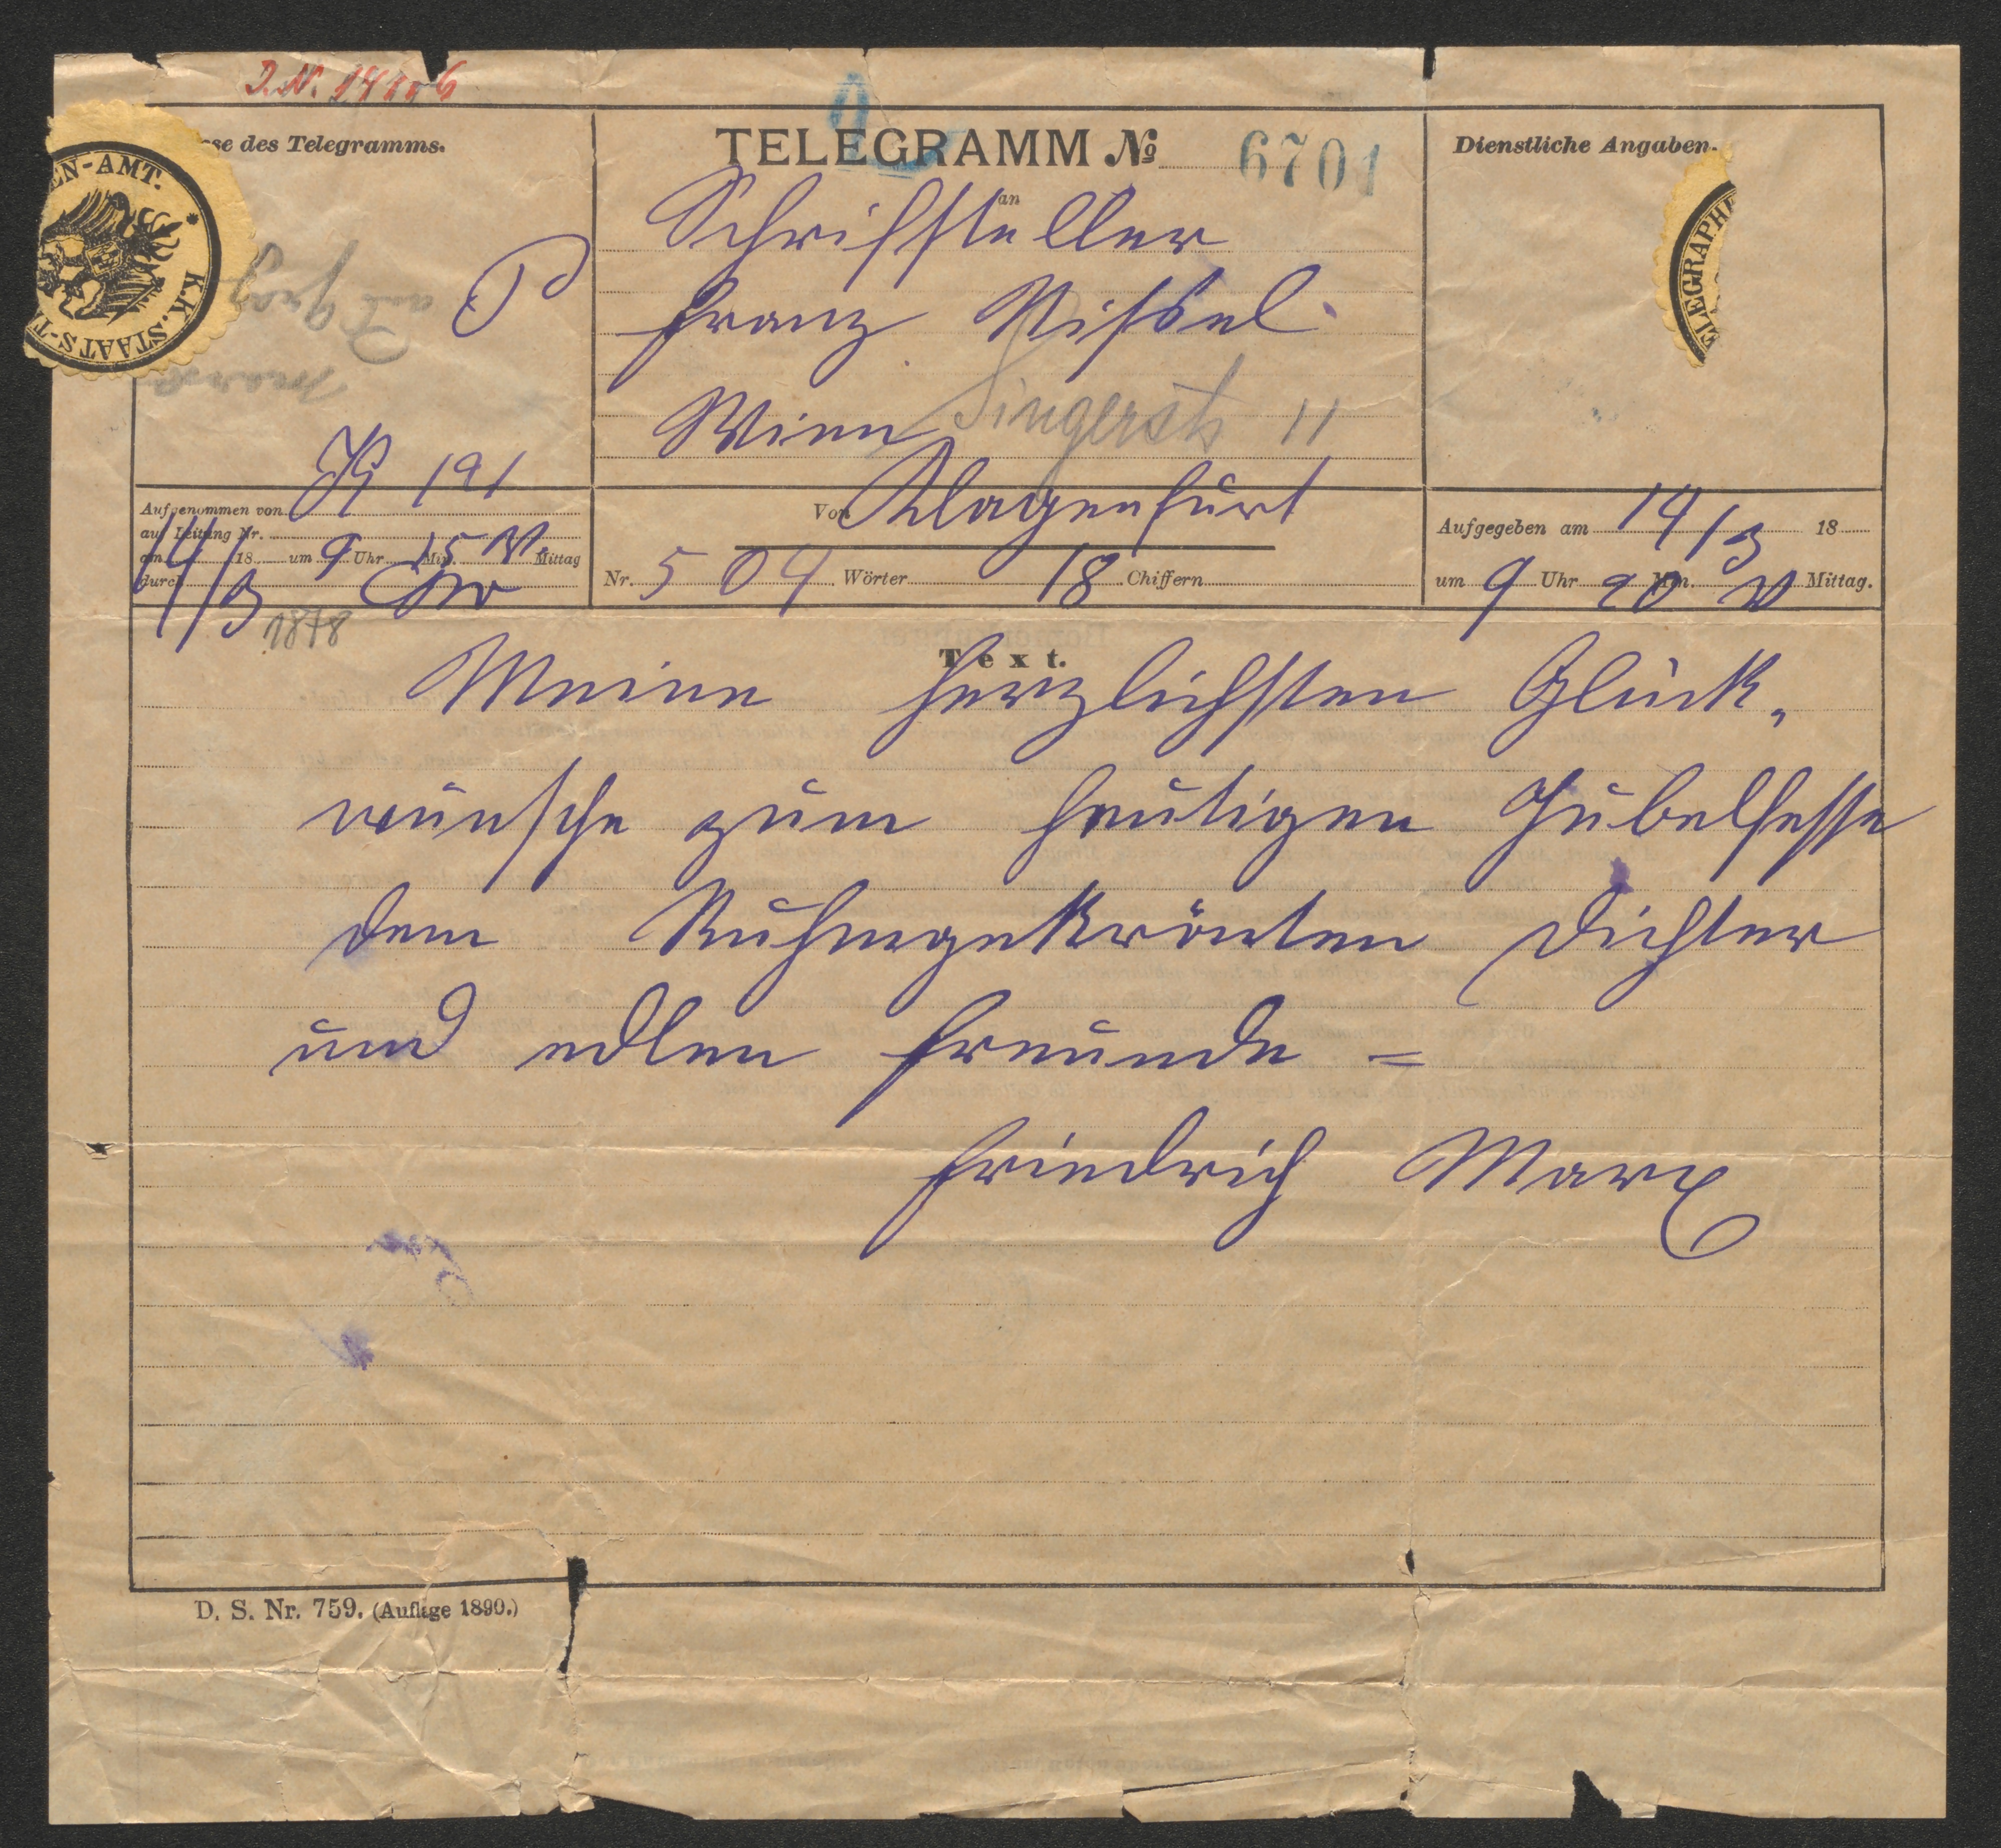 I.N. 14
se des Telegramms.
TELEGRAMM № 6701
Dienstliche Angaben.
EN-AMT. * K.K. STAATS-T
ELEGRAPHE
an
Schriftsteller
P
Franz Nissel
Wien Singerstr 11
191
Von Klagenfurt
Aufgenommen von
auf Leitung Nr.
am 14/3 18 um 9 Uhr 15 Min. V. Mittag
durch
Nr. 504 Wörter 18 Chiffern
Aufgegeben am 14/3 18
um 9 Uhr 20 Min. V Mittag.
1878
Text.
Meine herzlichsten Glück-
wünsche zum heutigen Jubelfeste
dem Ruhmgekrönten Dichter
und edlen Freunde =
Friedrich Marx
D. S. Nr. 759. (Auflage 1890.)